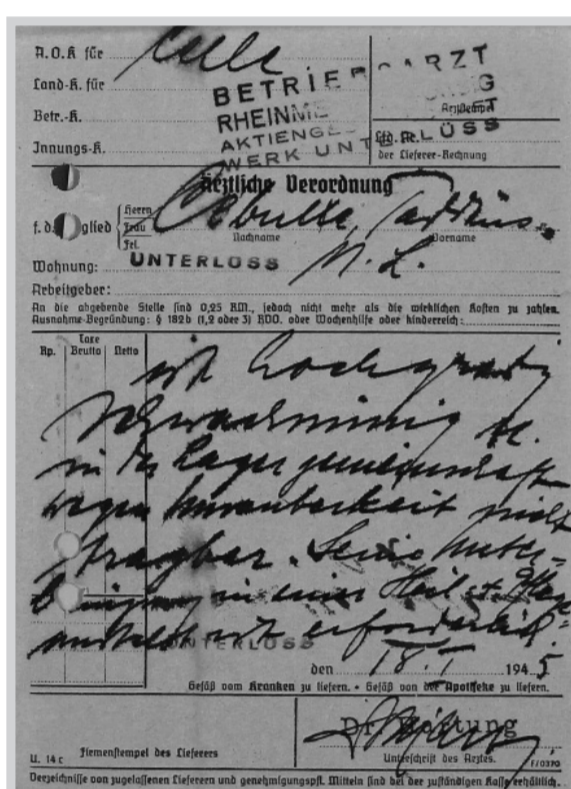 A.O.K für Celle
Land-K. für
Betr.-K.
Innungs-K.
BETRIEBSARZT
RHEINME
AKTIENGES
WERK UNTERLÜSS
Arztstempel
Lfd. Nr.
der Lieferer-Rechnung
Ärztliche Verordnung
f. d. glied
Herrn
Frau
Frl.
Cebulla, Taddäus.
Nachname Vorname
Wohnung: UNTERLÜSS N. L.
Arbeitgeber:
An die abgebende Stelle sind 0,25 RM., jedoch nicht mehr als die wirklichen Kosten zu zahlen.
Ausnahme-Begründung: § 182b (1,2 oder 3) RVO. oder Wochenhilfe oder kinderreich:
Rp.
Taxe
Brutto Netto
ist hochgradig
schwachsinnig u.
in der Lagergemeinschaft
wegen Unsauberkeit nicht
tragbar. Seine Unter-
bringung in einer Heil- u. Pflege-
anstalt ist erforderlich.
UNTERLÜSS
den 18. I 1945
Gefäß vom Kranken zu liefern. • Gefäß von der Apotheke zu liefern.
Firmenstempel des Lieferers
Unterschrift des Arztes.
U. 14 c
F/0370
Verzeichnisse von zugelassenen Lieferern und genehmigungspfl. Mitteln sind bei der zuständigen Kasse erhältlich.